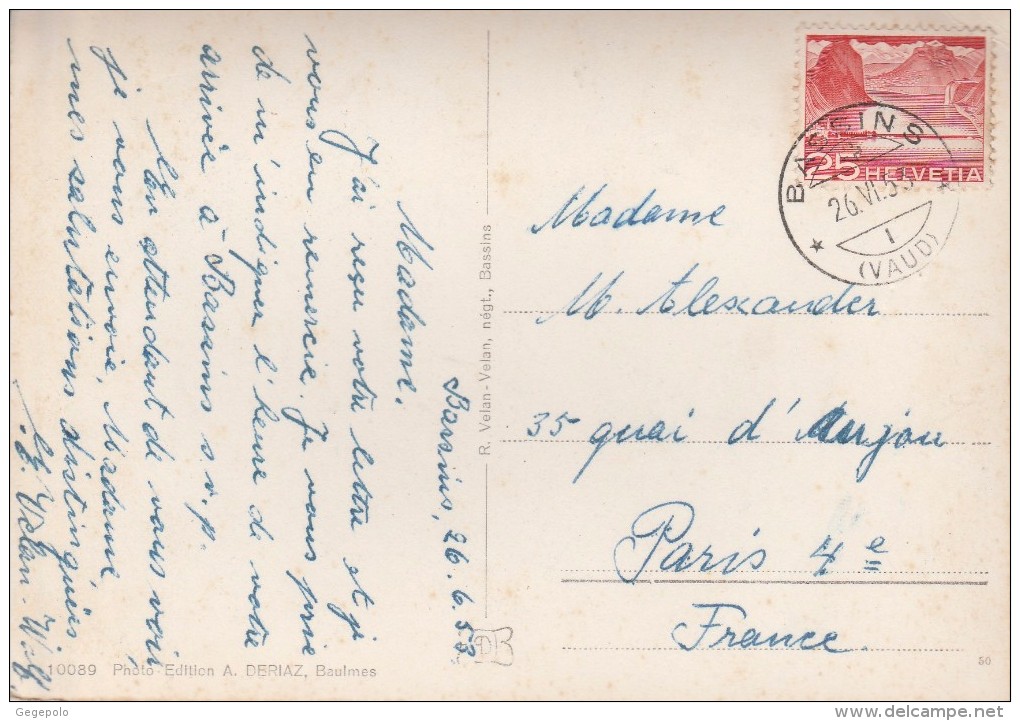 Bassins, 26.6.53.
Madame.
J'ai reçu votre lettre et je
vous en remercie. Je vous prie
de m'indiquer l'heure de votre
arrivée à Bassins s.v.p.
En attendant de vous voir,
je vous envoie, Madame
mes salutations distinguées
Velan-
R. Velan-Velan, négt., Bassins
10089 Photo-Edition A. DERIAZ, Baulmes
25 HELVETIA
BASSINS
26.VI.53
1
(VAUD)
Madame
M. Alexander
35 quai d'Anjou
Paris 4e
France.
50
Gegepolo
delcampe.net